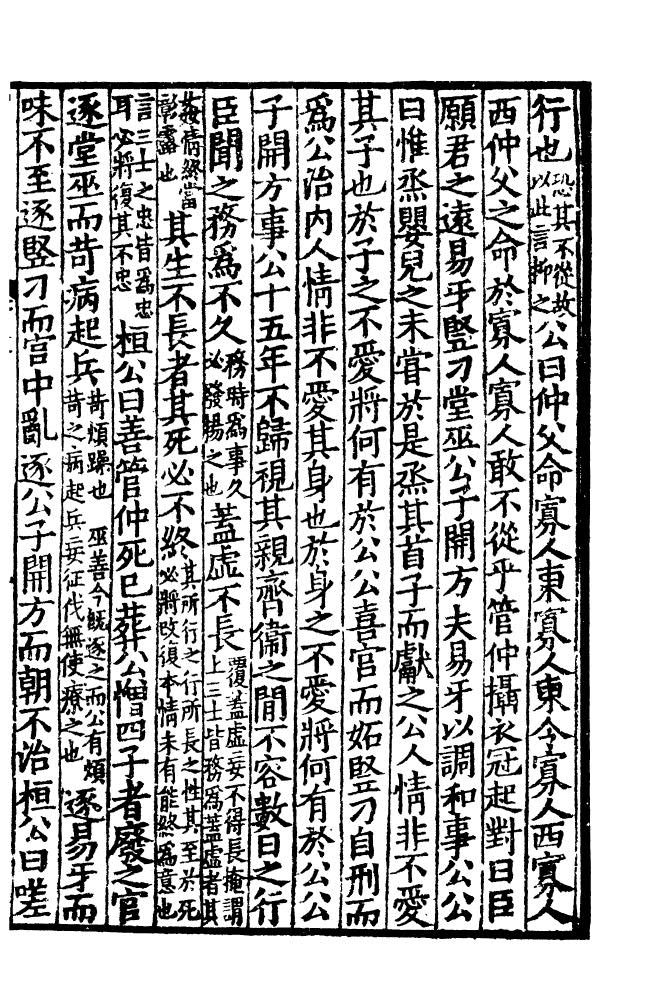 行也恐其不從故以此言抑之公曰仲父命寡人東寡人東令寡人西寡人
西仲父之命於寡人寡人敢不從乎管仲攝衣冠起對曰臣
願君之遠易牙豎刁堂巫公子開方夫易牙以調和事公公
曰惟烝嬰兒之未嘗於是烝其首子而獻之公人情非不愛
其子也於子之不愛將何有於公公喜官而妬豎刁自刑而
爲公治內人情非不愛其身也於身之不愛將何有於公公
子開方事公十五年不歸視其親齊衞之閒不容數日之行
臣聞之務爲不久務時爲事久必發揚之也蓋虛不長覆蓋虛妄不得長掩謂上三士皆務爲蓋虛者其
姦情終當彰露也其生不長者其死必不終其所行之行所長之性其至於死必將改復本情未有能終爲意也
言三士之忠皆爲忠耳必將復其不忠桓公曰善管仲死已葬公憎四子者廢之官
逐堂巫而苛病起兵苛煩躁也巫善令旣逐之而公有煩苛之病起兵妄征伐無使療之也逐易牙而
味不至逐豎刁而宮中亂逐公子開方而朝不治桓公曰嗟